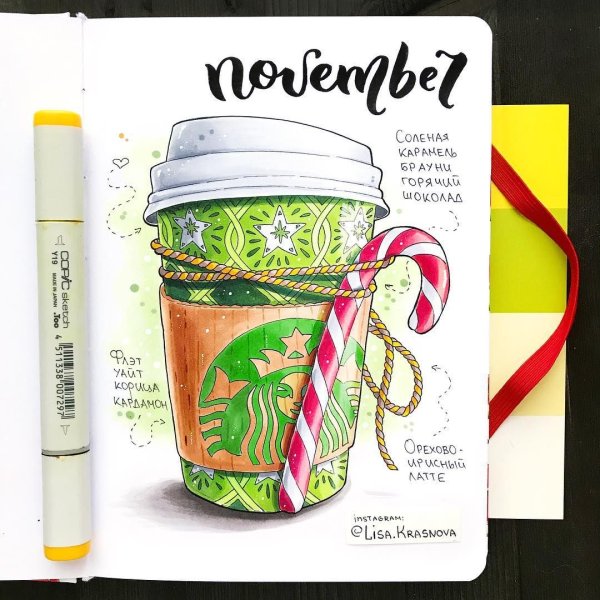 november
СОЛЕНАЯ
КАРАМЕЛЬ
БРАУНИ
ГОРЯЧИЙ
ШОКОЛАД
ФЛЭТ
УАЙТ
КОРИЦА
КАРДАМОН
ОРЕХОВО-
ИРИСНЫЙ
ЛАТТЕ
INSTAGRAM:
@LISA.KRASNOVA
COPIC sketch
Y19
MADE IN JAPAN Too
4 511338 007297